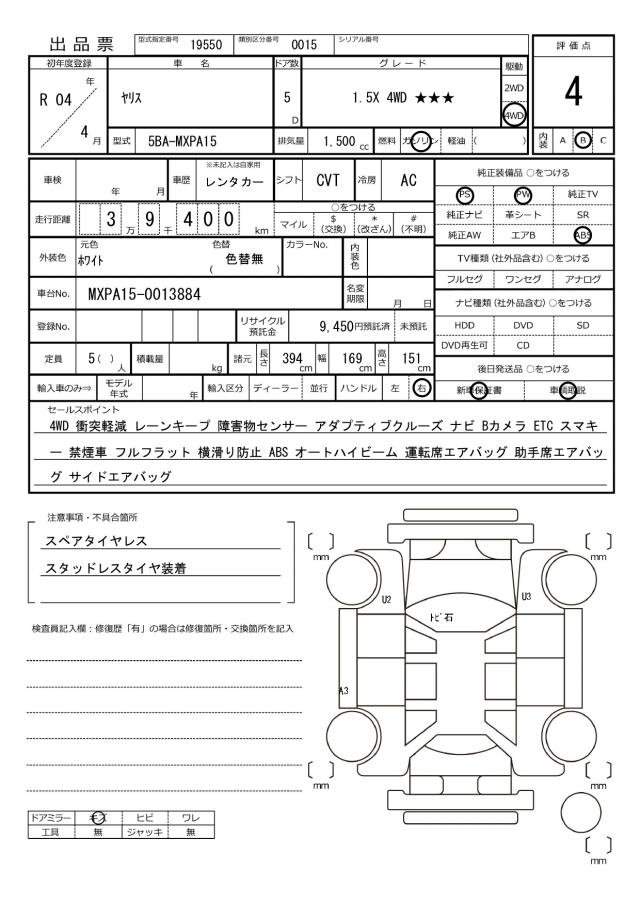 出品票 型式指定番号 19550 類別区分番号 0015 シリアル番号
評価点
4
内装 A B C
初年度登録 車名 ドア数 グレード 駆動
R 04 年 4 月 ヤリス 5 D 1.5X 4WD ★★★ 2WD 4WD
型式 5BA-MXPA15 排気量 1,500 cc 燃料 ガソリン 軽油 ( )
車検 年 月 車歴 ※未記入は自家用 レンタカー シフト CVT 冷房 AC
走行距離 3 万 9 千 4 0 0 km ○をつける
マイル $(交換) *(改ざん) #(不明)
外装色 元色 ホワイト 色替 ( 色替無 ) カラーNo. 内装色
車台No. MXPA15-0013884 名変期限 月 日
登録No. リサイクル預託金 9,450円預託済 未預託
定員 5( )人 積載量 kg 諸元 長さ 394 cm 幅 169 cm 高さ 151 cm
輸入車のみ⇒ モデル年式 年 輸入区分 ディーラー 並行 ハンドル 左 右
純正装備品 ○をつける
PS PW 純正TV
純正ナビ 革シート SR
純正AW エアB ABS
TV種類(社外品含む)○をつける
フルセグ ワンセグ アナログ
ナビ種類(社外品含む)○をつける
HDD DVD SD
DVD再生可 CD
後日発送品 ○をつける
新車保証書 車輌取説
セールスポイント
4WD 衝突軽減 レーンキープ 障害物センサー アダプティブクルーズ ナビ Bカメラ ETC スマキ
ー 禁煙車 フルフラット 横滑り防止 ABS オートハイビーム 運転席エアバッグ 助手席エアバッ
グ サイドエアバッグ
注意事項・不具合箇所
スペアタイヤレス
スタッドレスタイヤ装着
検査員記入欄：修復歴「有」の場合は修復箇所・交換箇所を記入
ドアミラー キズ ヒビ ワレ
工具 無 ジャッキ 無
[ ] mm [ ] mm
U2 U3
トビ石
A3
[ ] mm [ ] mm
[ ] mm